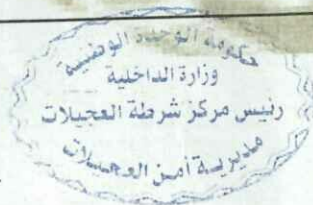 حكومة الوحدة الوطنية
وزارة الداخلية
رئيس مركز شرطة العجيلات
مديرية أمن العجيلات